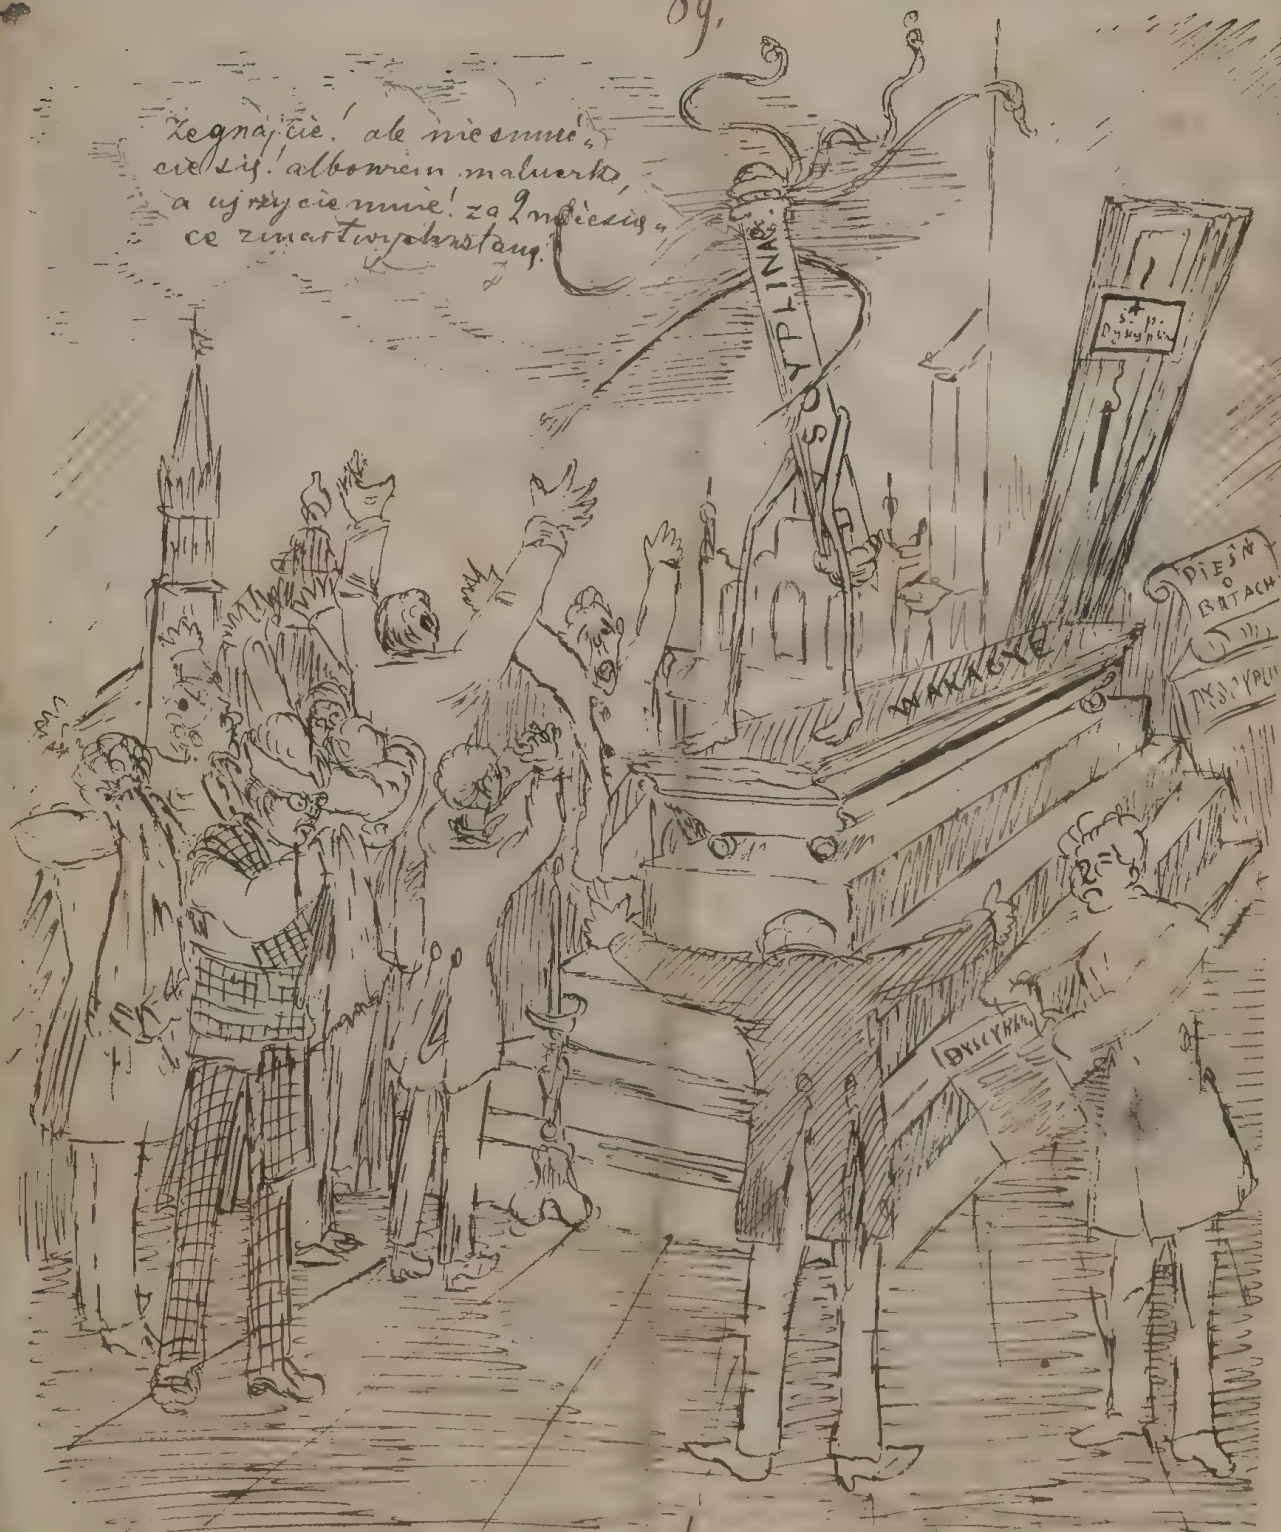 89.
Żegnajcie! ale nie smuć„
cie się! albowiem maluczko,
a ujrzycie mnie! za 2 miesią„
ce zmartwychwstanę!
DYSCYPLINA
ś. † p.
Dyscyplina
WAKACYE
PIEŚŃ
O
BATACH
DYSCYPLI
DYSCYPLIN